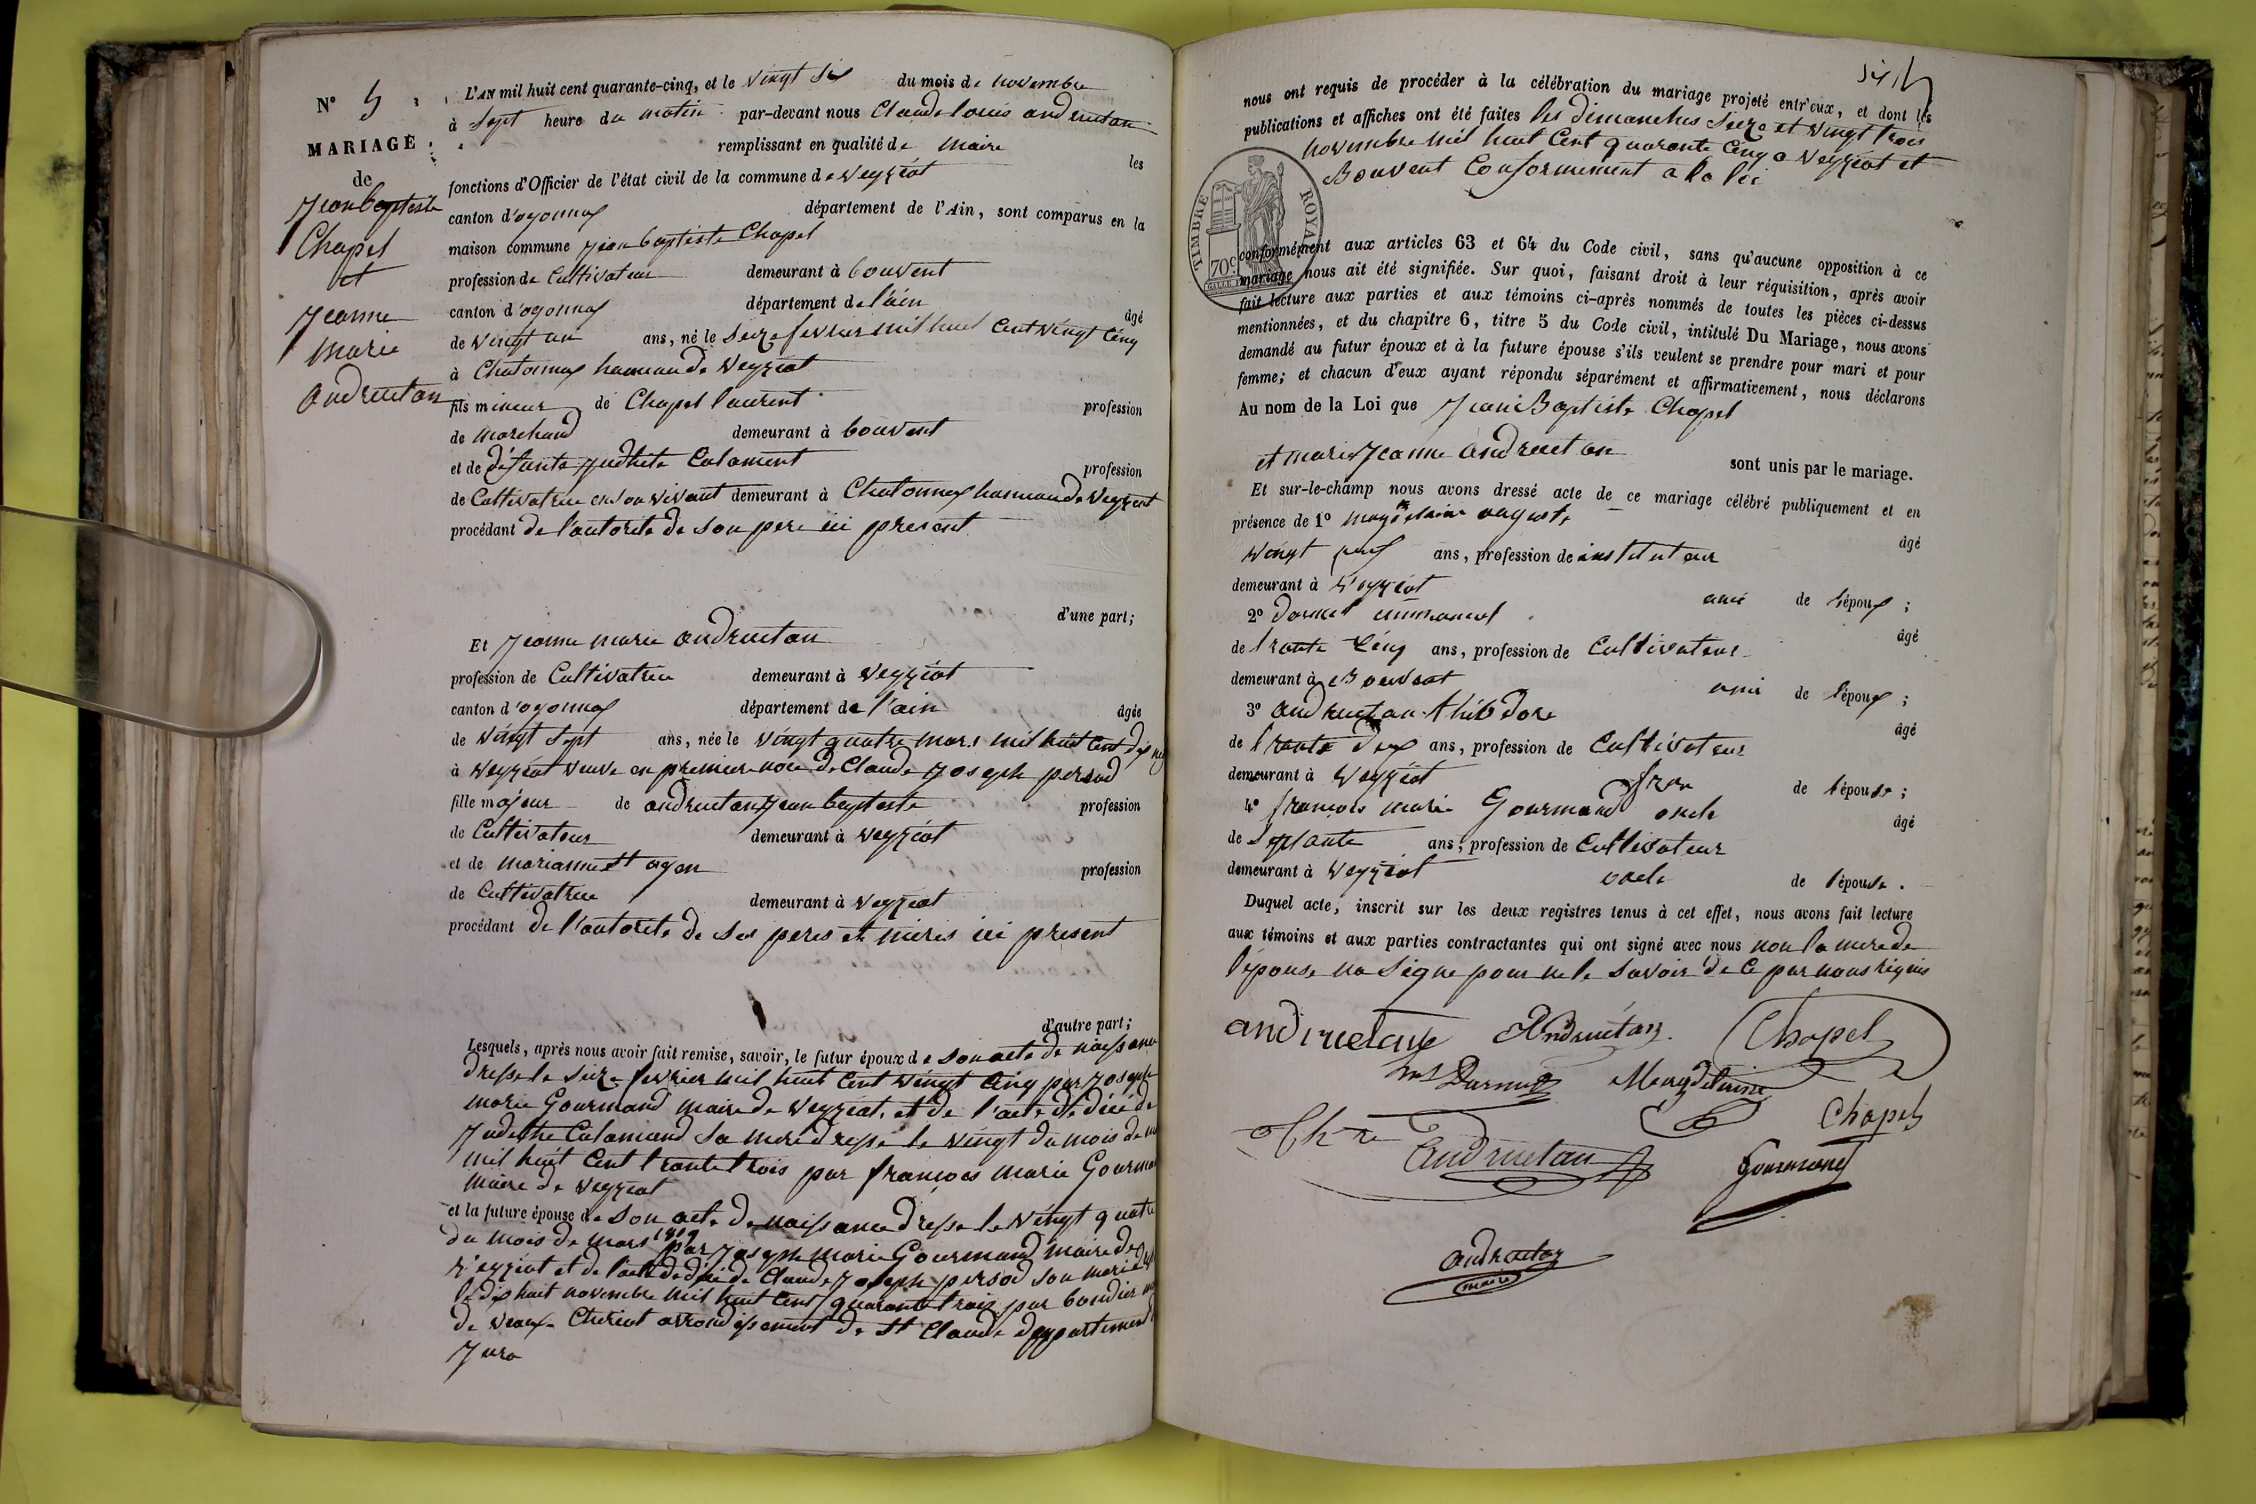 N° 5
MARIAGE
de
Jean baptiste
Chapel
et
Jeanne
Marie
andruetan
L'AN mil huit cent quarante-cinq, et le vingt six du mois de novembre
à sept heure du matin par-devant nous Claude louis andruetan
remplissant en qualité de Maire les
fonctions d'Officier de l'état civil de la commune de veyziat
canton d'oyonnax département de l'Ain, sont comparus en la
maison commune jean baptiste Chapel
profession de Cultivateur demeurant à bouvent
canton d'oyonnax département de l'ain âgé
de vingt un ans, né le seize fevrier mil huit Cent vingt Cinq
à Chatonnax hameau de veyziat
fils mineur de Chapel laurent profession
de marchand demeurant à bouvent
et de défunte judhite Calament profession
de Cultivatrice en son vivant demeurant à Chatonnax hameau de veyziat
procédant de l'autorité de son pere ici present
d'une part;
Et jeanne marie andruetan
profession de Cultivatrice demeurant à veyziat
canton d'oyonnax département de l'ain âgée
de vingt sept ans, née le vingt quatre mars mil huit Cent dix
à veyziat veuve en premiere noce de Claude joseph persod
fille majeur de andruetan jean baptiste profession
de Cultivateur demeurant à veyziat
et de marianne St oyen profession
de Cultivatrice demeurant à veyziat
procédant de l'autorité de ses peres et méres ici present
d'autre part;
Lesquels, après nous avoir fait remise, savoir, le futur époux de son acte de naissance
dressé le seize fevrier mil huit Cent vingt Cinq par joseph
marie Gourmand maire de veyziat, et de l'acte de décé de
judethe Calamand sa mere dressé le vingt du mois de
mil huit Cent trante trois par françois marie Gourman
maire de veyziat
et la future épouse de son acte de naissance dressé le vingt quatre
du mois de mars 1819 par joseph marie Gourmand maire de
veyziat et de l'acte de décé de Claude joseph persod son marie
le dix huit novembre mil huit Cent quarante trois par boudier
de veaux Cheriat arrondissement de St Claude departement
jura
nous ont requis de procéder à la célébration du mariage projeté entr'eux, et dont les
publications et affiches ont été faites les dimanches seize et vingt trois
novembre mil huit Cent quarante Cinq a veyziat et
Bouvent Conformement a la loi
TIMBRE ROYAL
70c
conformément aux articles 63 et 64 du Code civil, sans qu'aucune opposition à ce
mariage nous ait été signifiée. Sur quoi, faisant droit à leur réquisition, après avoir
fait lecture aux parties et aux témoins ci-après nommés de toutes les pièces ci-dessus
mentionnées, et du chapitre 6, titre 5 du Code civil, intitulé Du Mariage, nous avons
demandé au futur époux et à la future épouse s'ils veulent se prendre pour mari et pour
femme; et chacun d'eux ayant répondu séparément et affirmativement, nous déclarons
Au nom de la Loi que Jean Baptiste Chapel
et marie Jeanne andruetan sont unis par le mariage.
Et sur-le-champ nous avons dressé acte de ce mariage célébré publiquement et en
présence de 1° maydelaine auguste âgé
vingt neuf ans, profession de instituteur
demeurant à veyziat ami de l'époux;
2° Darmet emmanuel âgé
de trante Cinq ans, profession de Cultivateur
demeurant à Bouvent ami de l'époux;
3° andruetan théodore âgé
de trante deux ans, profession de Cultivateur
demeurant à veyziat frere de l'épouse;
4° françois marie Gourmand oncle âgé
de septante ans, profession de Cultivateur
demeurant à veyziat oncle de l'épouse.
Duquel acte, inscrit sur les deux registres tenus à cet effet, nous avons fait lecture
aux témoins et aux parties contractantes qui ont signé avec nous non la mere de
l'épouse na signe pour ne le savoir de Ce par nous requis
andruetan Andruétan. Chapel
Darmet Maydelaine
Chapel
Thre Andruetan Gourmand
andruetan
maire